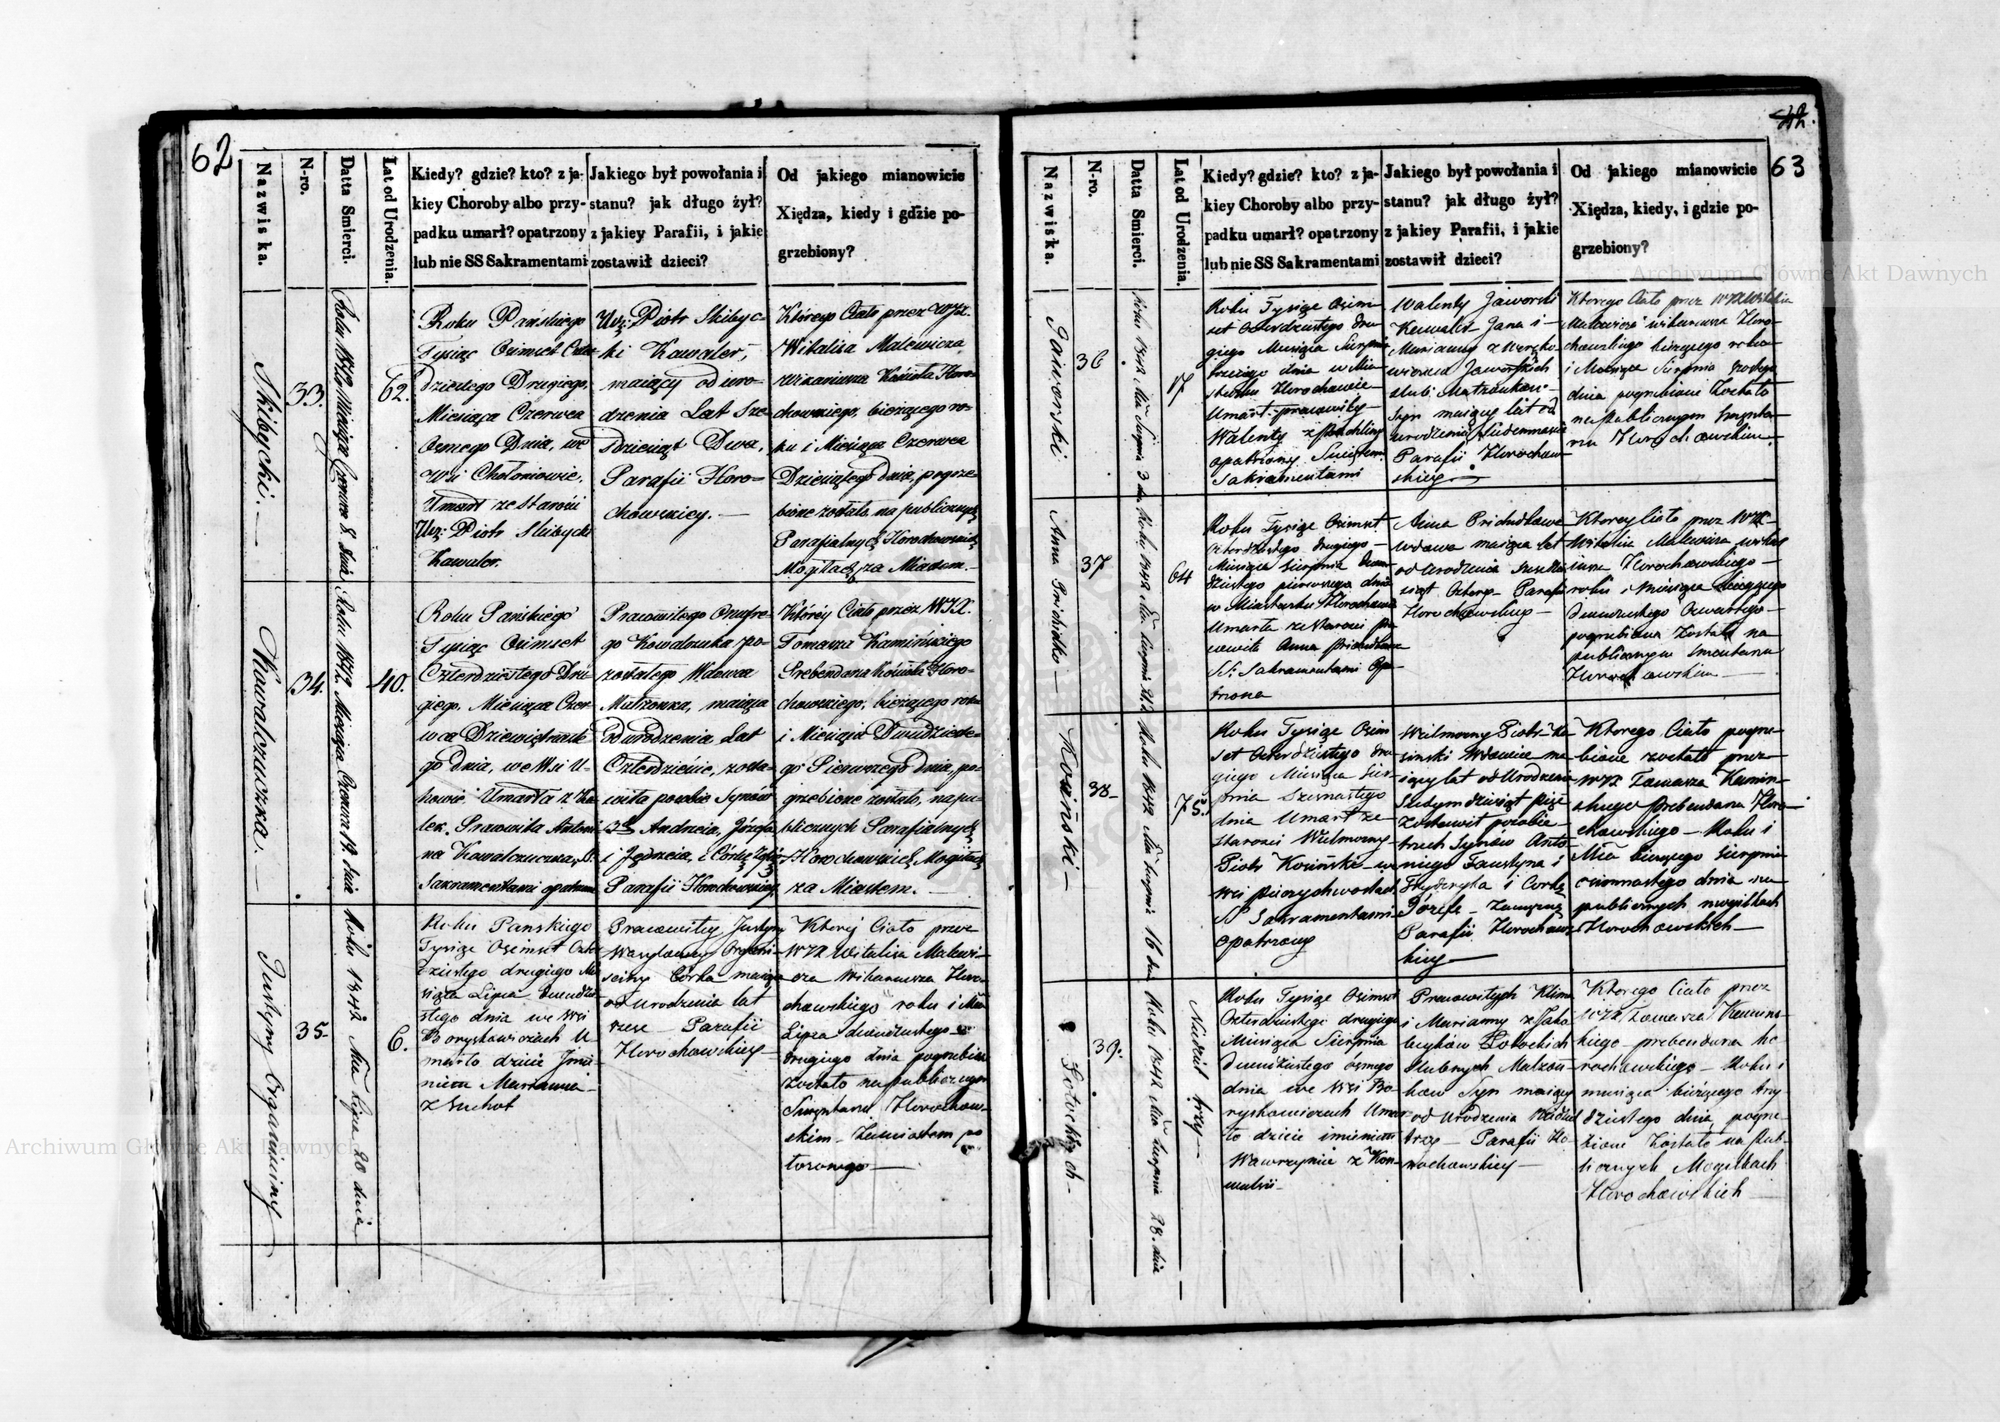 62
Nazwiska.
N-ro.
Datta Smierci.
Lat od Urodzenia.
Kiedy? gdzie? kto? z ja-
kiey Choroby albo przy-
padku umarł? opatrzony
lub nie SS Sakramentami
Jakiego był powołania i
stanu? jak długo żył?
z jakiey Parafii, i jakie
zostawił dzieci?
Od jakiego mianowicie
Xiędza, kiedy i gdzie po-
grzebiony?
Skibycki.
33.
Roku 1842 Miesiąca Czerwca 8. dnia
62.
Roku Pańskiego
Tysiąc Ośmset Czter
dziestego Drugiego,
Miesiąca Czerwca
Osmego Dnia, we
Wsi Chołoniowie,
Umarł ze starości
Urz: Piotr Skibycki
Kawaler.
Urz: Piotr Skibyc-
ki Kawaler,
maiący od uro-
dzenia Lat Sze
śdziesiąt Dwa,
Parafii Horo-
chowskiey.
Którego Ciało przez WJX.
Witalisa Malewicza
Wikariusza Kościoła Horo-
chowskiego, bieżącego ro-
ku i Miesiąca Czerwca
Dziesiątego dnia, pogrze
bione zostało na publicznych
Parafialnych Horochowskich
Mogiłach za Miastem.
Kowalczuczka.
34.
Roku 1842 Miesiąca Czerwca 19. dnia
40.
Roku Pańskiego
Tysiąc Ośmset
Czterdziestego Dru
giego, Miesiąca Czer
wca Dziewiętnaste
go dnia, we Wsi
Umarła z
Pracowita Antoni
na Kowalczuczka,
Sakramentami opatrzona
Pracowitego Onufre
go Kowalczuka po-
zostałego Wdowca
Małżonka, maiąca
od urodzenia Lat
Czterdzieście, zosta-
wiła po sobie Synów
Andrzeia, Józefa
i Jędrzeia, i Córkę
Parafii Horochowskiey
Któréy Ciało przez WJX.
Tomasza Kamińskiego
Prebendarza Kościoła Horo-
chowskiego, bieżącego roku
i Miesiąca Dwudzieste-
go Pierwszego Dnia, po-
grzebione zostało, na pu-
blicznych Parafialnych
Horochowskich Mogiłach
za Miastem.
Justyny Organiściny
35.
Roku 1842 Lipca 20 dnia
6.
Roku Panskiego
Tysiąc Ośmset Czter
dziestego drugiego Mie
siąca Lipca Dwudzie
stego dnia we Wsi
Boryskowiczach U
marło dziecie Jmie
niem Maryanna
z Suchot
Pracowitey Justyny
Organi-
sciny Córka maiąca
od urodzenia lat
sześć Parafii
Horochowskiey
Ktorej Ciało przez
WJX Witalisa Malewi-
cza Wikariusza Horo-
chowskiego roku i Mca
Lipca dwudziestego
drugiego dnia pogrzebione
zostało na publicznym
Smentarzu Horochow-
skim za miastem po
łożonego
63
Nazwiska.
N-ro.
Datta Smierci.
Lat od Urodzenia.
Kiedy? gdzie? kto? z ja-
kiey Choroby albo przy-
padku umarł? opatrzony
lub nie SS Sakramentami
Jakiego był powołania i
stanu? jak długo żył?
z jakiey Parafii, i jakie
zostawił dzieci?
Od jakiego mianowicie
Xiędza, kiedy, i gdzie po-
grzebiony?
Jaworski
36
Roku 1842 Mca Sierpnia 3 dn
17
Roku Tysiąc Ośm
set Czterdziestego dru
giego Miesiąca Sierpnia
trzeciego dnia w Mia
steczku Horochowie
Umarł pracowity
Walenty z
opatrzony Swiętemi
Sakramentami
Walenty Jaworski
Kawaler Jana i
Marianny z
Jaworskich
Małżonków
Syn maiący lat od
urodzenia siedemnaście
Parafii Horochow
skiey
Ktorego Ciało przez WJX Witalisa
Malewicza wikariusza Horo-
chowskiego bieżącego roku
i Miesiąca Sierpnia piątego
dnia pogrzebione zostało
na publicznym Smenta-
rzu Horochowskim
Anna Prichidko
37
Roku 1842 Mca Sierpnia 21 d
64
Roku Tysiąc Ośmset
Czterdziestego drugiego
Miesiąca Sierpnia dwu
dziestego pierwszego dnia
w Miasteczku Horochowie
Umarła ze starosci pra
cowita Anna
SS. Sakramentami Opa-
trzona
Anna
Wdowa maiąca lat
od urodzenia sześćdzie
siąt cztery Parafii
Horochowskiey
Ktorey ciało przez WJX
Witalisa Malewicza wikary
usza Horochowskiego
roku i miesiąca bieżącego
Dwudziestego Czwartego
pogrzebione zostało na
publicznym smentarzu
Horochowskim
Kosiński
38
Roku 1842 Mca Sierpnia 16 dn
75.
Roku Tysiąc Ośm
set Czterdziestego dru
giego Miesiąca Sier
pnia Szesnastego
dnia Umarł ze
starosci Wielmożny
Piotr Kosiński we
Wsi
SS Sakramentami
Opatrzony
Wielmożny Piotr Ko
siński Wdowiec ma
iący lat od Urodzenia
Siedymdziesiąt pięć
Zostawił po sobie
trzech Synów Anto
niego Faustyna i
Fryderyka i Corkę
Józefę
Parafii Horochow
skiey
Ktorego Ciało pogrze-
bione zostało przez
WJX Tomasza Kamin-
skiego prebendarza Horo-
chowskiego Roku i
Mca bieżącego Sierpnia
ośmnastego dnia na
publicznych mogiłkach
Horochowskich
39.
Roku 1842 Mca Sierpnia 28. dnia
Niedziel trzy
Roku Tysiąc Ośmset
Czterdziestego drugiego
Miesiąca Sierpnia
Dwudziestego ósmego
dnia we Wsi Bo-
ryskowiczach Umar
ło dziecie imieniem
Wawrzyniec z Kon-
wulsii
Pracowitych Klima
i Marianny
slubnych Małżon
kow Syn maiący
od Urodzenia Niedziel
trzy Parafii Ho
rochowskiey
Ktorego Ciało przez
WJX Tomasza Kamins-
kiego prebendarza Ho
rochowskiego Roku i
miesiąca bieżącego trzy
dziestego dnia, pogrze-
bione Zostało na Pub-
licznych Mogiłkach
Horochowskich
Archiwum Główne Akt Dawnych
Archiwum Główne Akt Dawnych